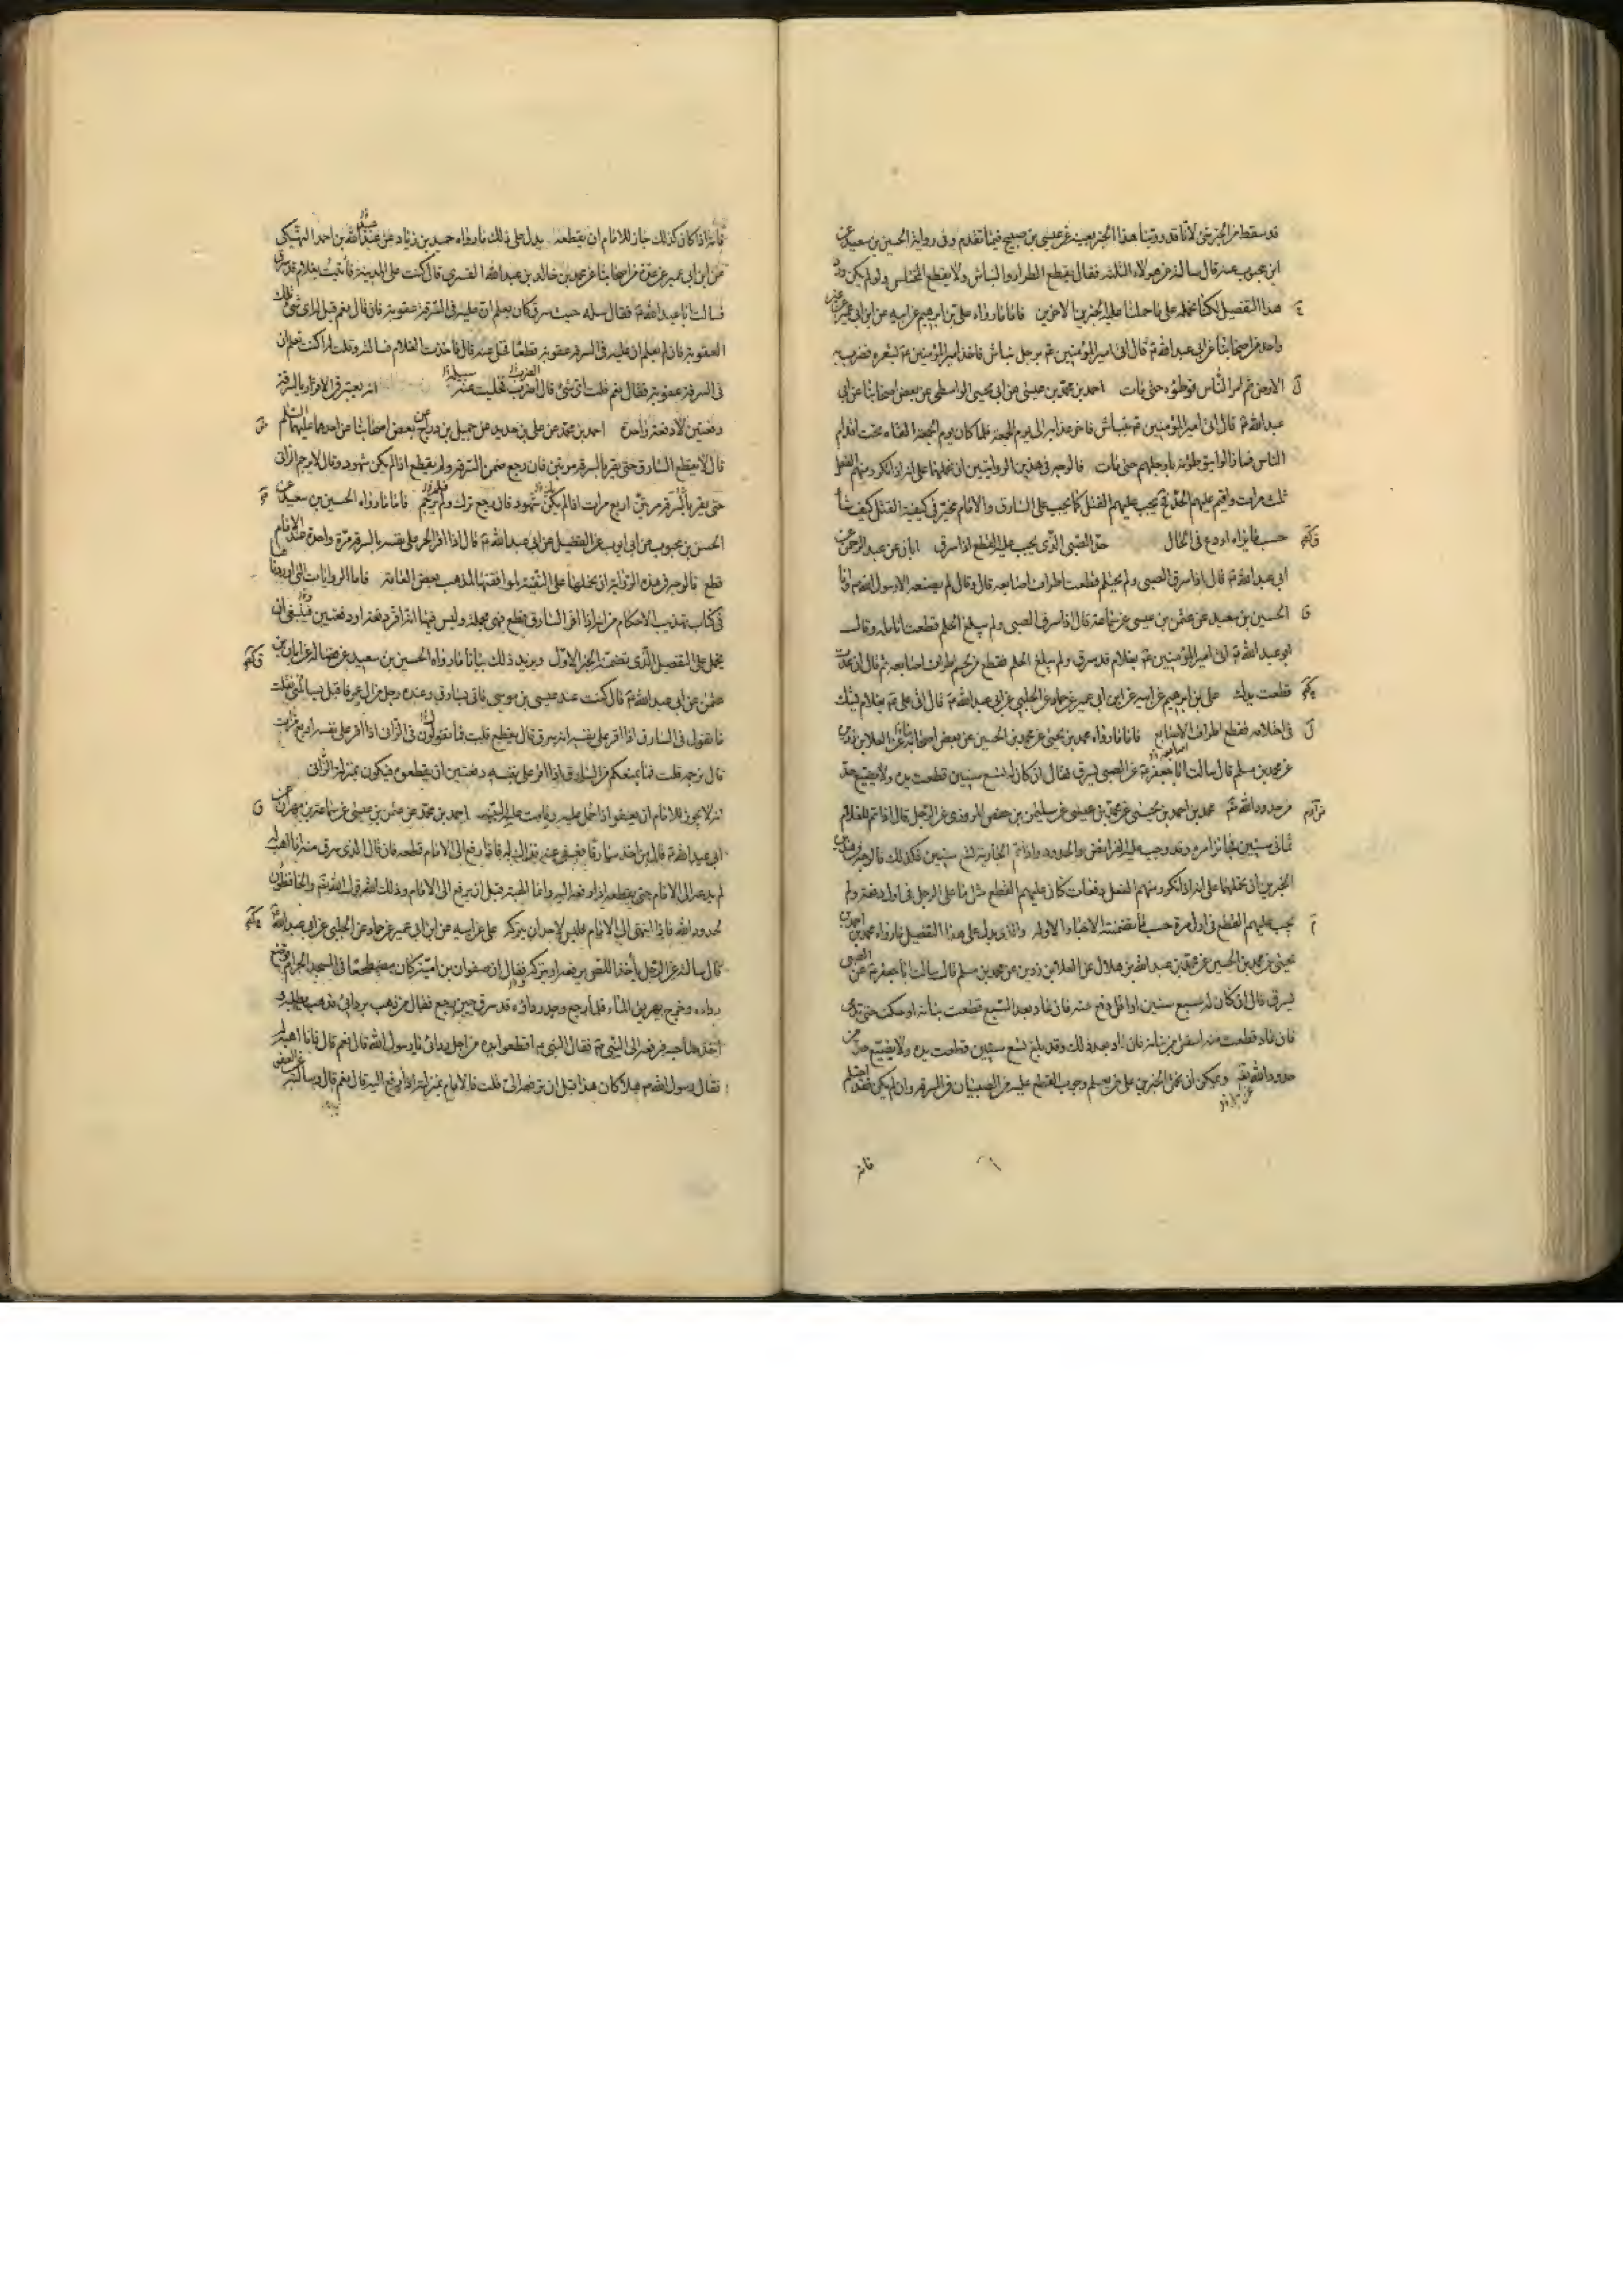 قد سقط من الخبر شئ لانا قد روينا هذا الخبر بعينه عن عيسى بن صبيح فيما تقدم وفى رواية الحسين بن سعيد عن
ابن محبوب عنه قال سالته عن هولاء الثلثة فقال يقطع الطرار والنباش ولا يقطع المختلس ولو لم يكن ورد
هذا التفصيل لكنا نحمله على ما حملنا عليه الخبرين الاخرين فاما ما رواه على بن ابرهيم عن ابيه عن ابن ابى عمير عن غير
واحد من اصحابنا عن ابى عبد الله ع قال اتى امير المؤمنين ع برجل نباش فاخذ امير المؤمنين ع بشعره فضرب به
الارض ثم امر الناس فوطئوه حتى مات احمد بن محمد بن عيسى عن ابى يحيى الواسطى عن بعض اصحابنا عن ابى
عبد الله ع قال اتى امير المؤمنين ع بنباش فاخر عذابه الى يوم الجمعة فلما كان يوم الجمعة القاه تحت اقدام
الناس فما زالوا يتوطؤنه بارجلهم حتى مات فالوجه فى هذين الروايتين ان نحملهما على انه اذا تكرر منهم الفعل
ثلث مرات واقيم عليهم الحد فح يجب عليهم القتل كما يجب على السارق والامام مخير فى كيفية القتل كيف شاء
حسب ما يراه اردع فى الحال حد الصبى الذى يجب عليه القطع اذا سرق ابان عن عبد الرحمن عن
ابى عبد الله ع قال اذا سرق الصبى ولم يحتلم قطعت اطراف اصابعه قال وقال لم يصنعه الا رسول الله ص وانا
الحسين بن سعيد عن عثمن بن عيسى عن سماعة قال اذا سرق الصبى ولم يبلغ الحلم قطعت انامله وقال
ابو عبد الله ع اتى امير المؤمنين ع بغلام قد سرق ولم يبلغ الحلم فقطع من لحم اطراف اصابعه ثم قال ان عدت
قطعت يدك على بن ابرهيم عن ابيه عن ابن ابى عمير عن حماد عن الحلبى عن ابى عبد الله ع قال اتى على ع بغلام يشك
فى احتلامه فقطع اطراف الاصابع فاما ما رواه محمد بن يحيى عن محمد بن الحسين عن بعض اصحابه عن العلا بن رزين
عن محمد بن مسلم قال سالت ابا جعفر ع عن الصبى يسرق فقال ان كان له تسع سنين قطعت يده ولا يضيع حد
من حدود الله تع محمد بن احمد بن يحيى عن محمد بن عيسى عن سليمن بن حفص المروزى عن الرجل قال اذا تم للغلام
ثمانى سنين فجائز امره وقد وجب عليه الفرائض والحدود واذا تم للجارية تسع سنين فكذلك فالوجه فى هذين
الخبرين ان نحملهما على انه اذا تكرر منهم الفعل دفعات كان عليهم القطع مثل ما على الرجل فى اول دفعة ولم
يجب عليهم القطع فى اول مرة حسب ما تضمنته الاخبار الاوله والذى يدل على هذا التفصيل ما رواه محمد بن احمد بن
يحيى عن محمد بن الحسين عن محمد بن عبد الله بن هلال عن العلا بن رزين عن محمد بن مسلم قال سالت ابا جعفر ع عن الصبى
يسرق قال ان كان له سبع سنين او اقل رفع عنه فان عاد بعد السبع قطعت بنانه او حكت حتى تدمى
فان عاد قطعت منه اسفل من بنانه فان عاد بعد ذلك وقد بلغ تسع سنين قطعت يده ولا يضيع حد من
حدود الله تع ويمكن ان نحمل الخبرين على من يعلم وجوب القطع عليه من الصبيان فى السرقة وان لم يكن قد احتلم
فانه
فانه اذا كان كذلك جاز للامام ان يقطعه يدل على ذلك ما رواه حميد بن زياد عن عبيد الله بن احمد النهيكى
عن ابن ابى عمير عن عدة من اصحابنا عن محمد بن خالد بن عبد الله القسرى قال كنت على المدينة فاتيت بغلام قد سرق
فسالت ابا عبد الله ع فقال سله حيث سرق كان يعلم ان عليه فى السرقة عقوبة فان قال نعم قيل له اى شئ تلك
العقوبة فان لم يعلم ان عليه فى السرقة عقوبة قطعا فخل عنه قال فاخذت الغلام فسالته وقلت له اكنت تعلم ان
فى السرقة عقوبة فقال نعم قلت اى شئ قال الضرب فخليت عنه انه يعتبر فى الاقرار بالسرقة
دفعتين لا دفعة واحدة احمد بن محمد عن على بن حديد عن جميل بن دراج عن بعض اصحابنا عن احدهما عليهما السلم
قال لا يقطع السارق حتى يقر بالسرقة مرتين فان رجع ضمن السرقة ولم يقطع اذا لم يكن شهود وقال لا يرجم الزانى
حتى يقر اربع مرات اذا لم يكن شهود فان رجع ترك ولم يرجم فاما ما رواه الحسين بن سعيد عن
الحسن بن محبوب عن ابى ايوب عن الفضيل عن ابى عبد الله ع قال اذا اقر الحر على نفسه بالسرقة مرة واحدة عند الامام
قطع فالوجه فى هذه الرواية ان نحملها على التقية لموافقتها لمذهب بعض العامة فاما الروايات التى اوردناها
فى كتاب تهذيب الاحكام من انه اذا اقر السارق قطع فهى مجملة وليس فيها انه اقر دفعة او دفعتين فينبغى ان
يحمل على التفصيل الذى تضمنه الخبر الاول ويزيد ذلك بيانا ما رواه الحسين بن سعيد عن فضالة عن ابان بن
عثمن عن ابى عبد الله ع قال كنت عند عيسى بن موسى فاتى بسارق وعنده رجل من ال عمر فاقبل يسائلنى فقلت
ما تقول فى السارق اذا اقر على نفسه انه سرق قال يقطع قلت فما تقولون فى الزانى اذا اقر على نفسه اربع مرات
قال نرجمه قلت فما يمنعكم من السارق اذا اقر على نفسه دفعتين ان يقطعوه فيكون بمنزلة الزانى
انه لا يجوز للامام ان يعفو اذا حمل اليه وقامت عليه البينة احمد بن محمد عن عثمن بن عيسى عن سماعة بن مهران عن
ابى عبد الله ع قال من اخذ سارقا فعفى عنه فذاك له فاذا رفع الى الامام قطعه فان قال الذى سرق منه انا اهبه له
لم يدعه الامام حتى يقطعه اذا رفعه اليه وانما الهبة قبل ان يرفع الى الامام وذلك قول الله تع والحافظون
لحدود الله فاذا انتهى الى الامام فليس لاحد ان يتركه على عن ابيه عن ابن ابى عمير عن حماد عن الحلبى عن ابى عبد الله ع
قال سالته عن الرجل ياخذ اللص يرفعه او يتركه فقال ان صفوان بن امية كان مضطجعا فى المسجد الحرام فوضع
رداءه وخرج يهريق الماء فلما رجع وجد رداؤه قد سرق حين رجع فقال من ذهب بردائى فذهب يطلبه
فاخذ صاحبه فرفعه الى النبى ص فقال النبى ص اقطعوا يده من اجل ردائى يا رسول الله قال نعم قال فانا اهبه له
فقال رسول الله ص هلا كان هذا قبل ان ترفعه الى قلت فالامام بمنزلته اذا رفع اليه قال نعم قال وسالته